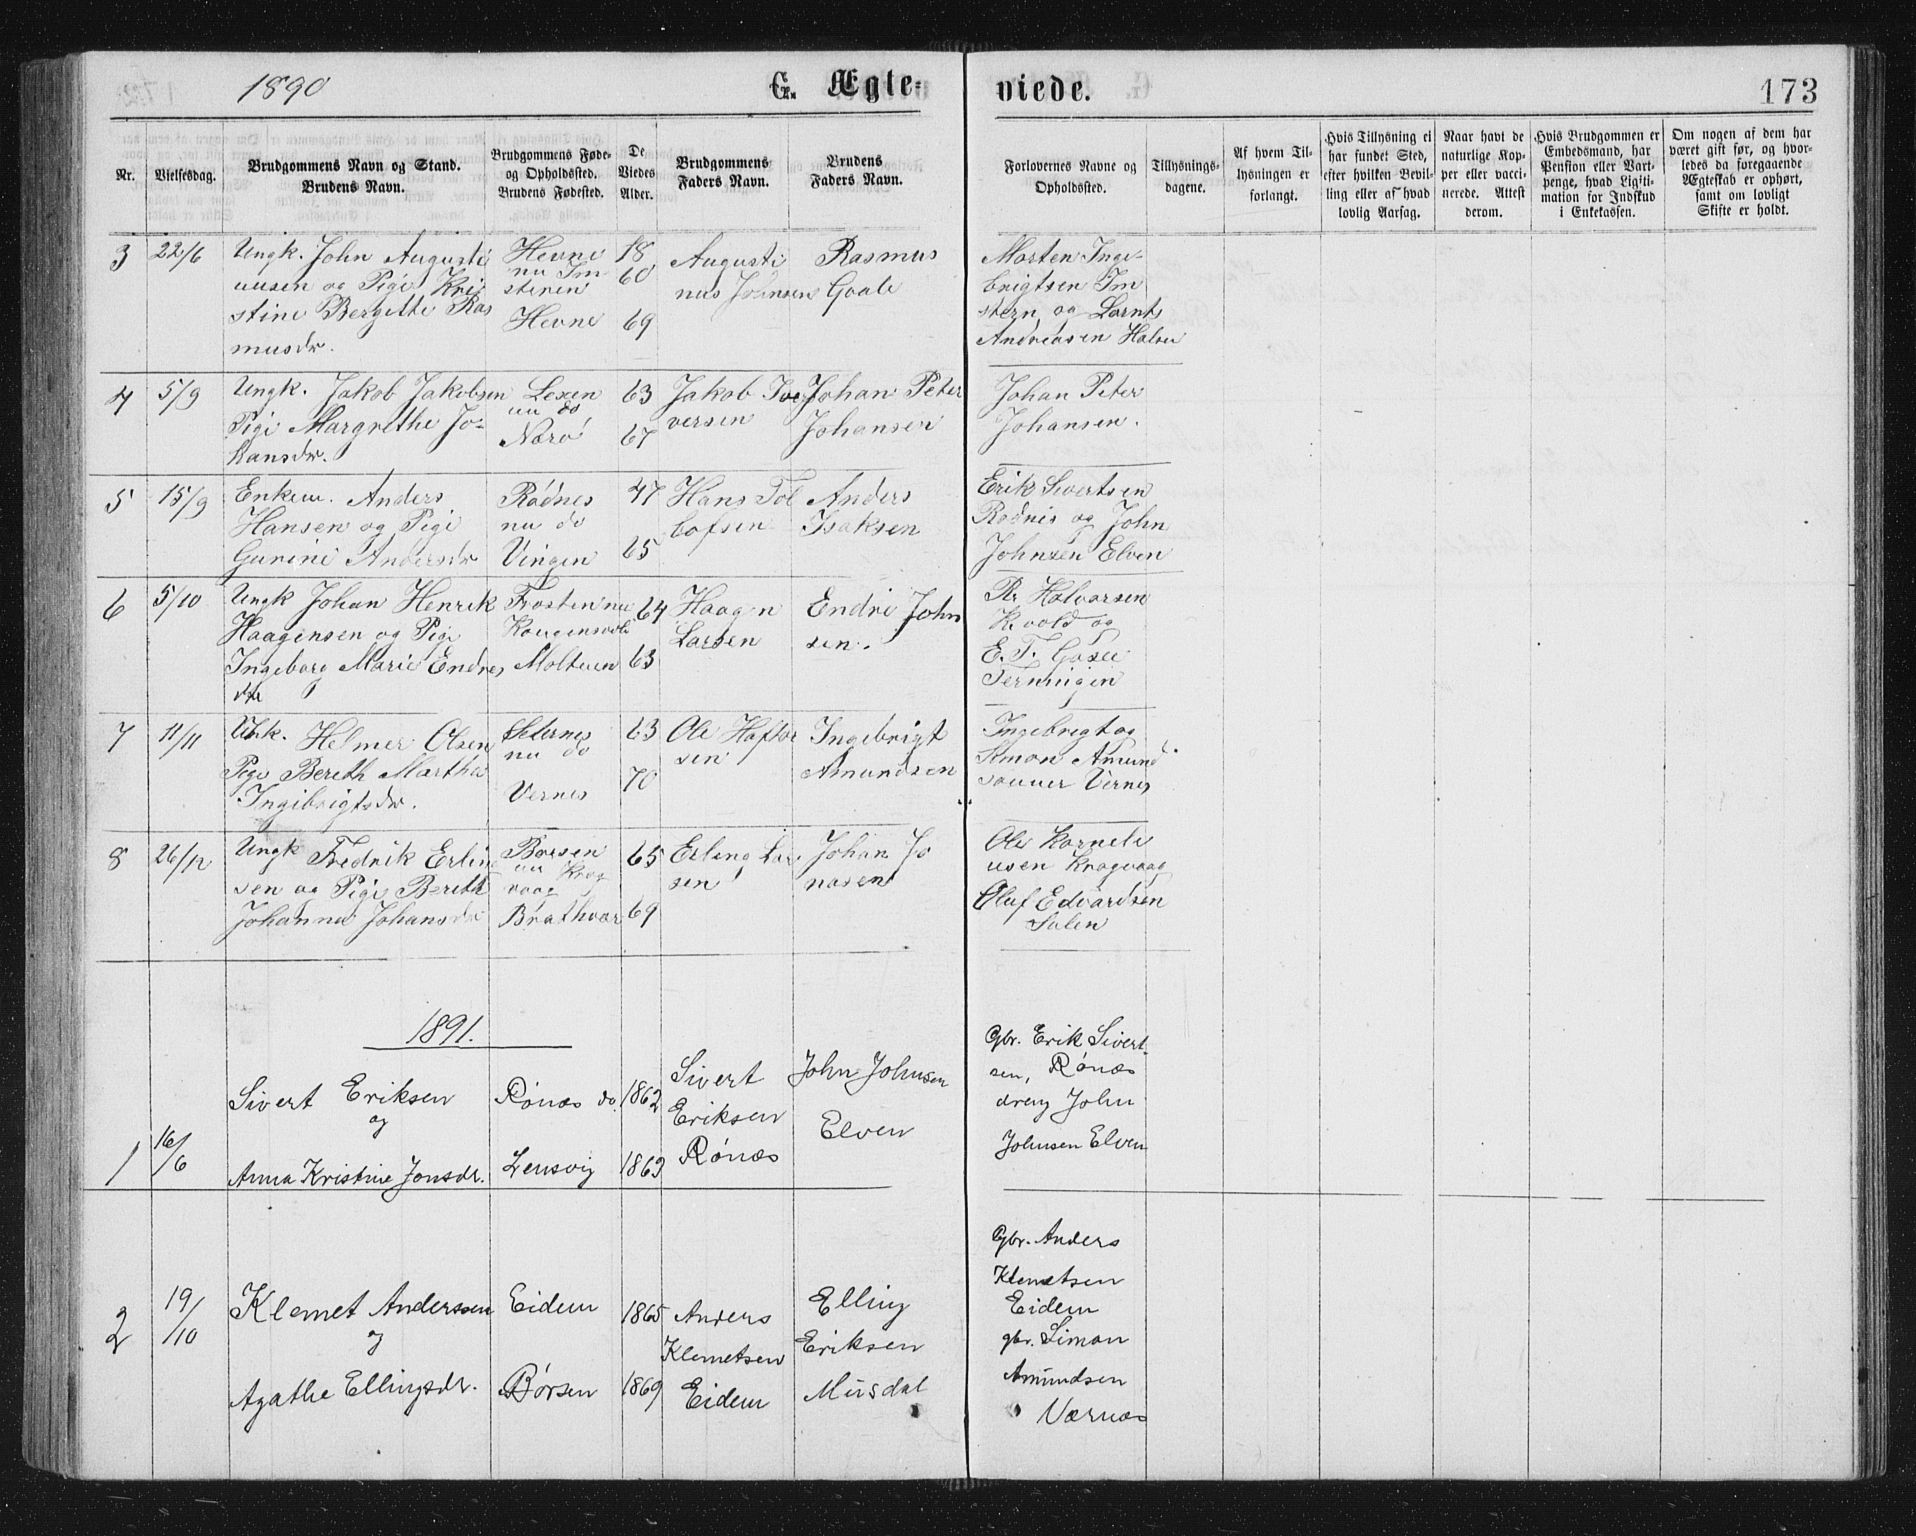 1890
G. Ægte-
viede.
173
Nr.
Vielsesdag.
Brudgommens Navn og Stand.
Brudens Navn.
Brudgommens Føde-
og Opholdssted.
Brudens Fødested.
De
Viedes
Alder.
Brudgommens
Faders Navn.
Brudens
Faders Navn.
Forlovernes Navne og
Opholdssted.
Tillysnings-
dagene.
Af hvem Til-
lysningen er
forlangt.
Hvis Tillysning ei
har fundet Sted,
efter hvilken Bevil-
ling eller af hvad
lovlig Aarsag.
Naar havt de
naturlige Kop-
per eller vacci-
nerede. Attest
derom.
Hvis Brudgommen er
Embedsmand, har
Pension eller Vart-
penge, hvad Ligiti-
mation for Indskud
i Enkekassen.
Om nogen af dem har
været gift før, og hvor-
ledes da foregaaende
Ægteskab er ophørt,
samt om lovligt
Skifte er holdt.
3
22/6
Ungk. John Augusti
nusen og Pige Kri
stine Bergitte Ras
musdr.
Hevne
nu Im-
steren
Hevne
18
60
69
Augusti
nus Johnsen
Rasmus
Gaale
Morten Inge-
brigtsen Im
stern og Lornts
Andreasen
4
5/9
Ungk. Jakob Jakobsen
Pige Margrethe Jo-
hansdr.
Lexen
nu do
Nærø
63
67
Jakob
versen
Johan Peter
Johansen
Johan Peter
Johansen.
5
15/9
Enkem. Anders
Hansen og Pige
Gurine Andersdr
Rødnes
nu do
Vingen
47
65
Hans Tol
lofsen
Anders
Isaksen
Erik Sivertsen
Rødnes og John
Johnsen Elven
6
5/10
Ungk Johan Henrik
Haagensen og Pige
Ingeborg Marie Endres
dr
Frosten nu
Kongensvold
Molteuen
64
63
Haagen
Larsen
Endre John
sen.
Halvorsen
Kvold og
E. T.
Terningen
7
11/11
Ungk. Helmer Olsen
Pige Bereth Martha
Ingebrigtsdr.
nu do
Vernes
63
70
Ole Haftor
sen
Ingebrigt
Amundsen
Ingebrigt og
Simon Amund
sønner Vernes
8
26/12
Ungk Fredrik Erling
sen og Pige Bereth
Johanna Johansdr
Børsen
nu Krog
vaag
Brathvær
65
69
Erling Lar
sen
Johan Jo
nasen
Ole Korneli
usen Krogvaag
Oluf Edvardsen
Salen
1891.
1
16/6
Sivert Eriksen
og
Anna Kristine Jonsdr.
Rønæs do.
Lensvig
1862
1863
Sivert
Eriksen
Rønæs
John Johnsen
Elven
Gbr. Erik Sivert-
sen, Rønæs
dreng John
Johnsen Elven
2
19/10
Klemet Anderssen
og
Agathe Ellingsdr.
Eidem
Børsen
1865
1869
Anders
Klemetsen
Eidem
Elling
Eriksen
Musdal
Gbr. Anders
Klemetsen
Eidem
gbr. Simon
Amundsen
Værnæs